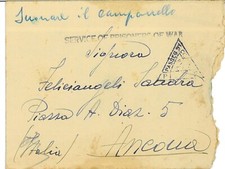 Suonare il campanello
SERVICE OF PRISONERS OF WAR
Signora
Feliciangeli Sandra
Piazza A. Diaz. 5
(Italia) Ancona